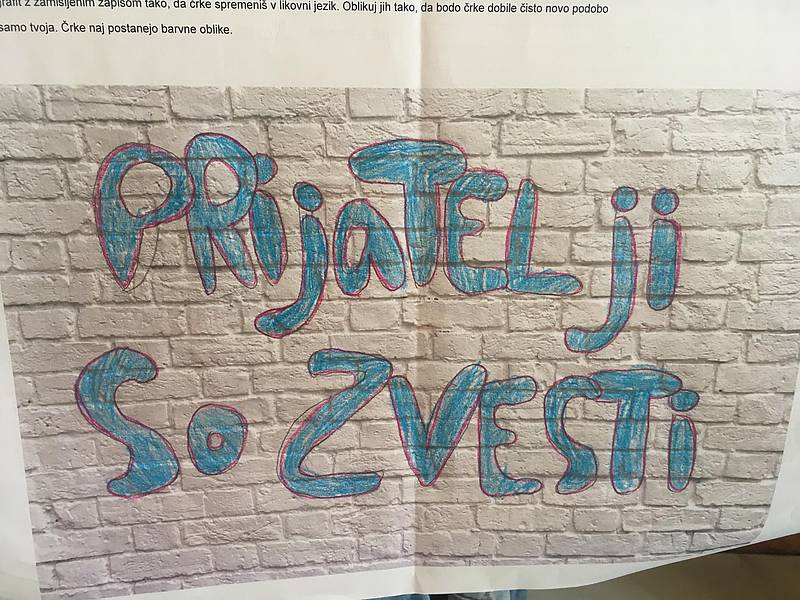 grafit z zamišljenim zapisom tako, da črke spremeniš v likovni jezik. Oblikuj jih tako, da bodo črke dobile čisto novo podobo
samo tvoja. Črke naj postanejo barvne oblike.
PRijaTELji
So ZVESTi